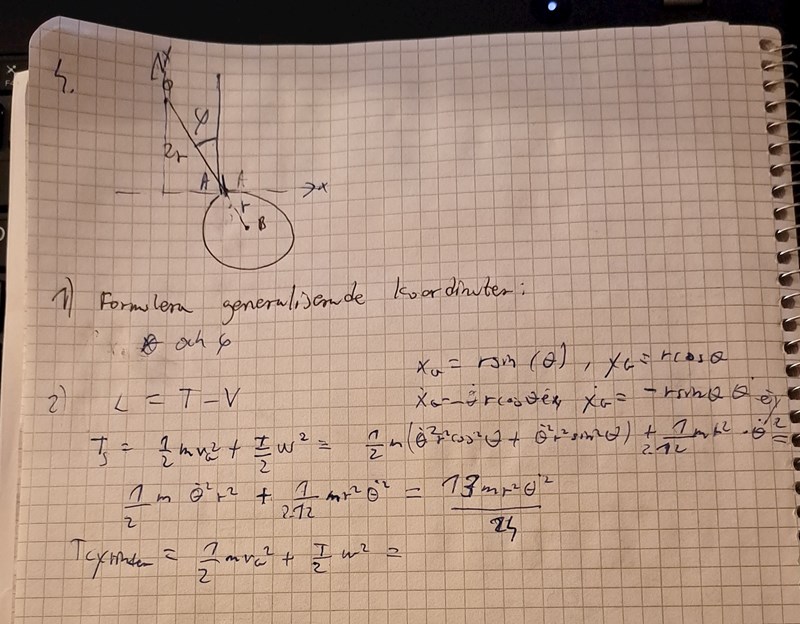 4.
y
φ
2r
A A
x
r
B
1) Formulera generaliserade koordinater:
θ och φ
x_G = r sin(θ), y_G = r cos θ
2) L = T - V
ẋ_G = θ̇ r cos θ e_x, ẏ_G = - r sin θ θ̇ e_y
T_s = 1/2 m v_G² + I/2 ω² = 1/2 m (θ̇² r² cos² θ + θ̇² r² sin² θ) + 1/2 1/12 m r² · θ̇² =
1/2 m θ̇² r² + 1/2·12 m r² θ̇² = 13 m r² θ̇² / 24
= 1/2 m v_G² + I/2 ω² =